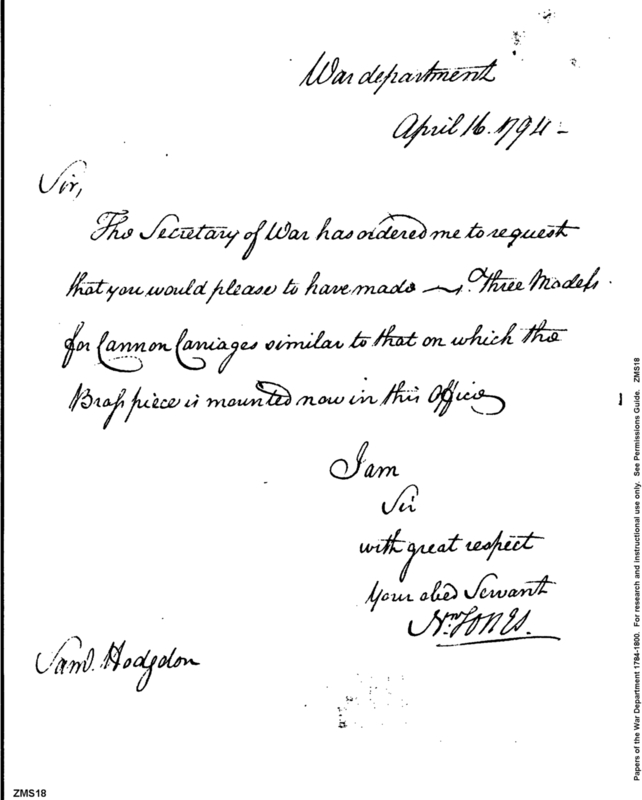 War department
April 16. 1794 -
Sir,
The Secretary of War has ordered me to request
that you would please to have made Three Models
for Cannon Carriages similar to that on which the
Brass piece is mounted now in this Office
I am
Sir
with great respect
Your obed Servant
Nn Jones.
Saml. Hodgdon
ZMS18
Papers of the War Department 1784-1800. For research and instructional use only. See Permissions Guide. ZMS18